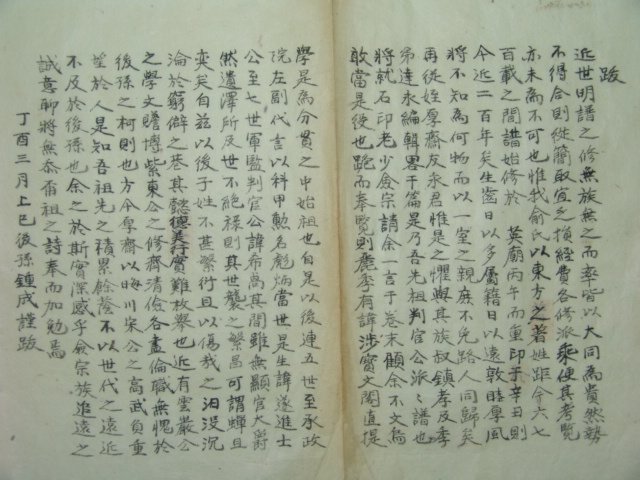 跋
近世明譜之修無族無之而率皆以大同為貴然勢
不得合則從簡取宜之損經費各修派乘便其考覧
亦未為不可也惟我俞氏以東方之著姓距今六七
百載之間譜始修於 英廟丙午而重印于辛丑則
今近二百年矣生齒日以多屬籍日以遠敦時厚風
將不知為何物而以一室之親庶不免路人同歸矣
再從姪厚齋友永君惟是之懼與其族叔鎮孝及季
弟達永編輯畧干篇是乃吾先祖判官公派之譜也
將執石印老少僉宗請余一言于卷末顧余不文焉
敢當是役也跪而奉覧則麗季有諱涉寶文閣直提
學是為分貫之中始祖也自是以後連五世至承政
院左副代言以科甲勲名彪炳當世是生諱遂進士
公至七世軍監判官公諱希禼其間雖無顯官大爵
然遺澤所及世不絶祿則其世襲之繁昌可謂蟬且
奕矣自玆以後子姓不甚繁衍且以傷哉之汨没沉
淪於窮僻之巷其懿德美行實難枚擧也近有雲巖公
之學文贍博紫東公之修齊清儉各盡倫職無愧於
後孫之柯則也方今厚齋以晦川宋公之高武負重
望於人是知吾祖先之積累餘蔭不以世代之遠近
不及於後孫也余之於斯實深感乎僉宗族追遠之
誠意聊將無忝爾祖之詩奉而加勉焉
丁酉三月上巳後孫鍾成謹跋